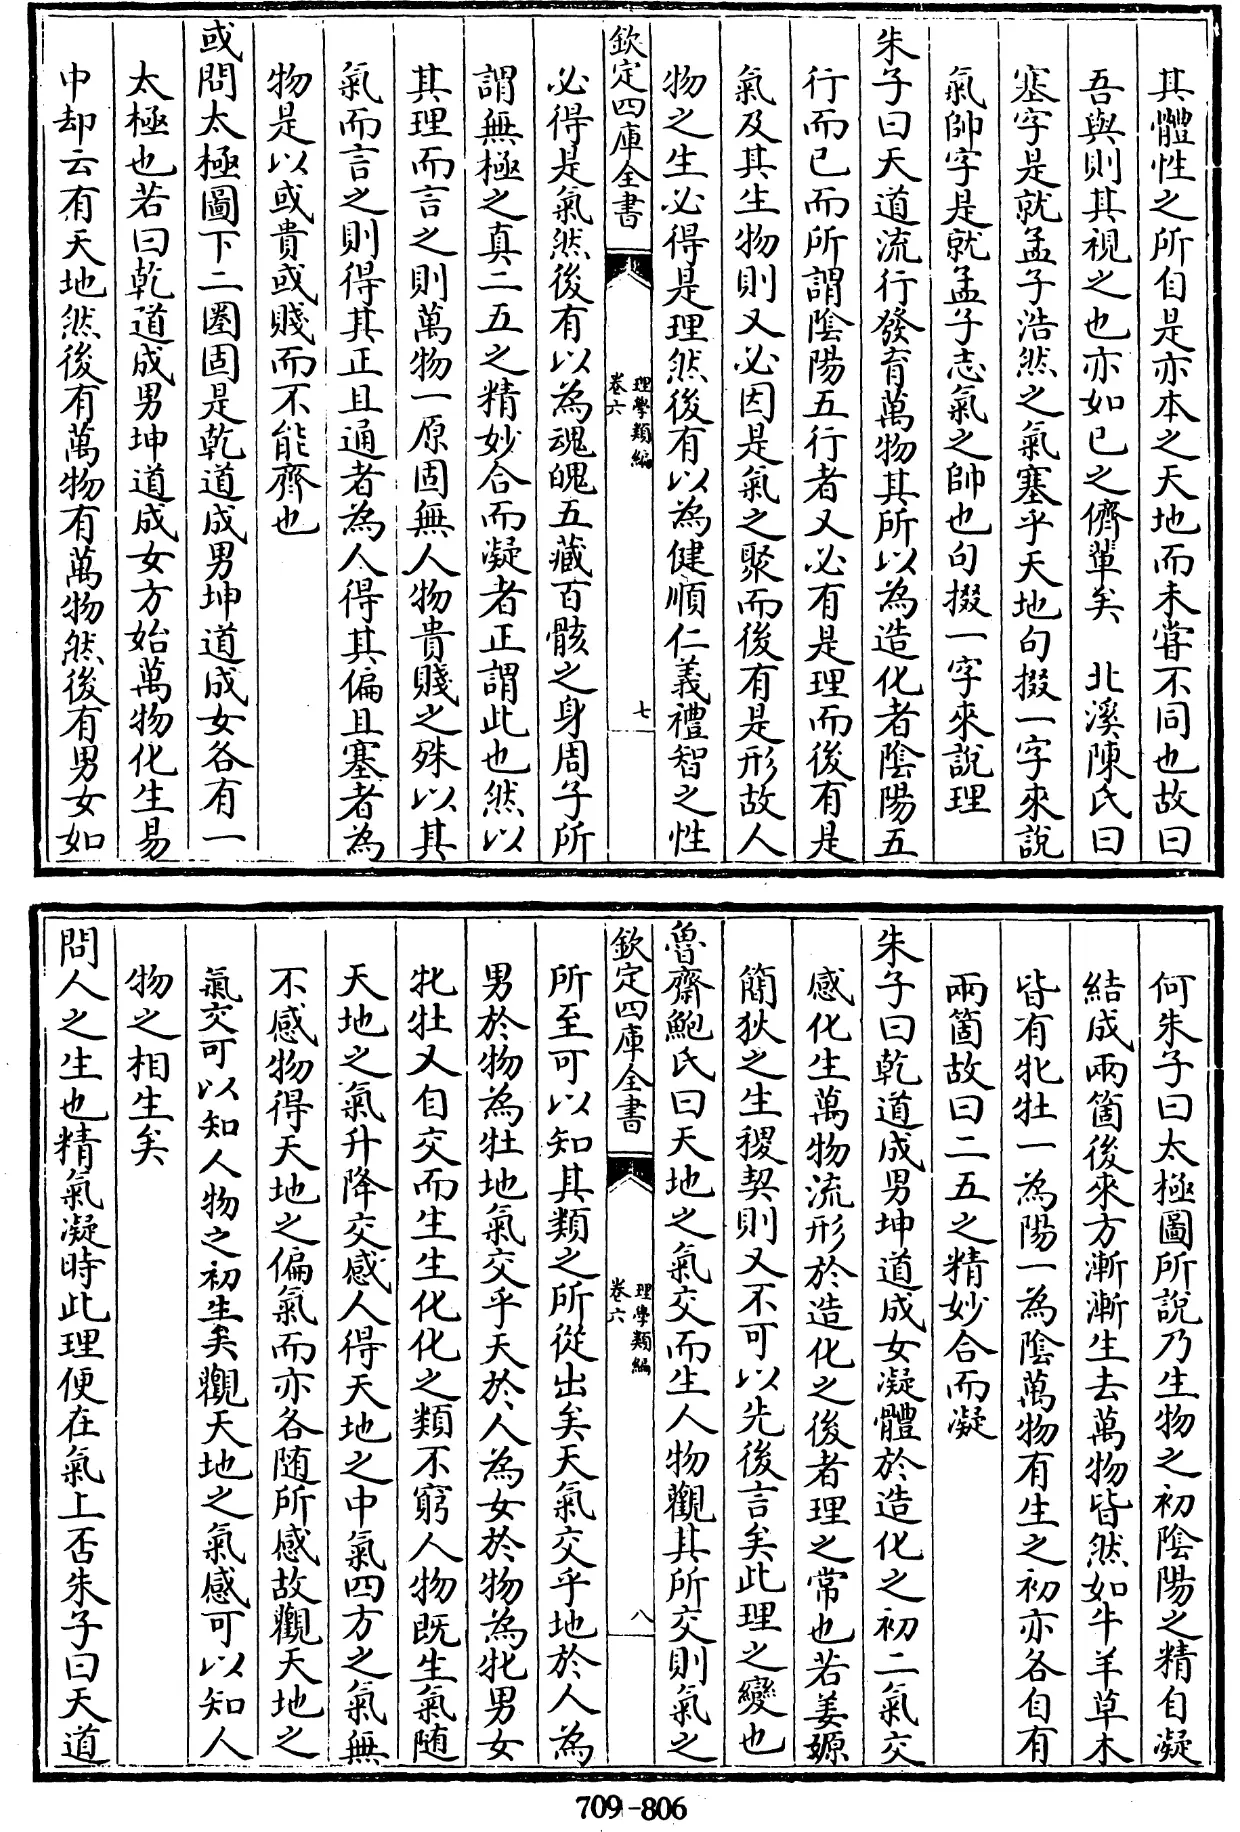 其體性之所自是亦本之天地而未甞不同也故曰
吾與則其視之也亦如已之儕輩矣　北溪陳氏曰
塞字是就孟子浩然之氣塞乎天地句掇一字來說
氣帥字是就孟子志氣之帥也句掇一字來說理
朱子曰天道流行發育萬物其所以為造化者陰陽五
行而已而所謂陰陽五行者又必有是理而後有是
氣及其生物則又必因是氣之聚而後有是形故人
物之生必得是理然後有以為健順仁義禮智之性
欽定四庫全書　理學類編　卷六　七
必得是氣然後有以為魂魄五藏百骸之身周子所
謂無極之真二五之精妙合而凝者正謂此也然以
其理而言之則萬物一原固無人物貴賤之殊以其
氣而言之則得其正且通者為人得其偏且塞者為
物是以或貴或賤而不能齊也
或問太極圖下二圈固是乾道成男坤道成女各有一
太極也若曰乾道成男坤道成女方始萬物化生易
中却云有天地然後有萬物有萬物然後有男女如
何朱子曰太極圖所說乃生物之初陰陽之精自凝
結成兩箇後來方漸漸生去萬物皆然如牛羊草木
皆有牝牡一為陽一為陰萬物有生之初亦各自有
兩箇故曰二五之精妙合而凝
朱子曰乾道成男坤道成女凝體於造化之初二氣交
感化生萬物流形於造化之後者理之常也若姜嫄
簡狄之生稷契則又不可以先後言矣此理之變也
魯齋鮑氏曰天地之氣交而生人物觀其所交則氣之
欽定四庫全書　理學類編　卷六　八
所至可以知其類之所從出矣天氣交乎地於人為
男於物為牡地氣交乎天於人為女於物為牝男女
牝牡又自交而生生化化之類不窮人物既生氣随
天地之氣升降交感人得天地之中氣四方之氣無
不感物得天地之偏氣而亦各随所感故觀天地之
氣交可以知人物之初生矣觀天地之氣感可以知人
物之相生矣
問人之生也精氣凝時此理便在氣上否朱子曰天道
709-806